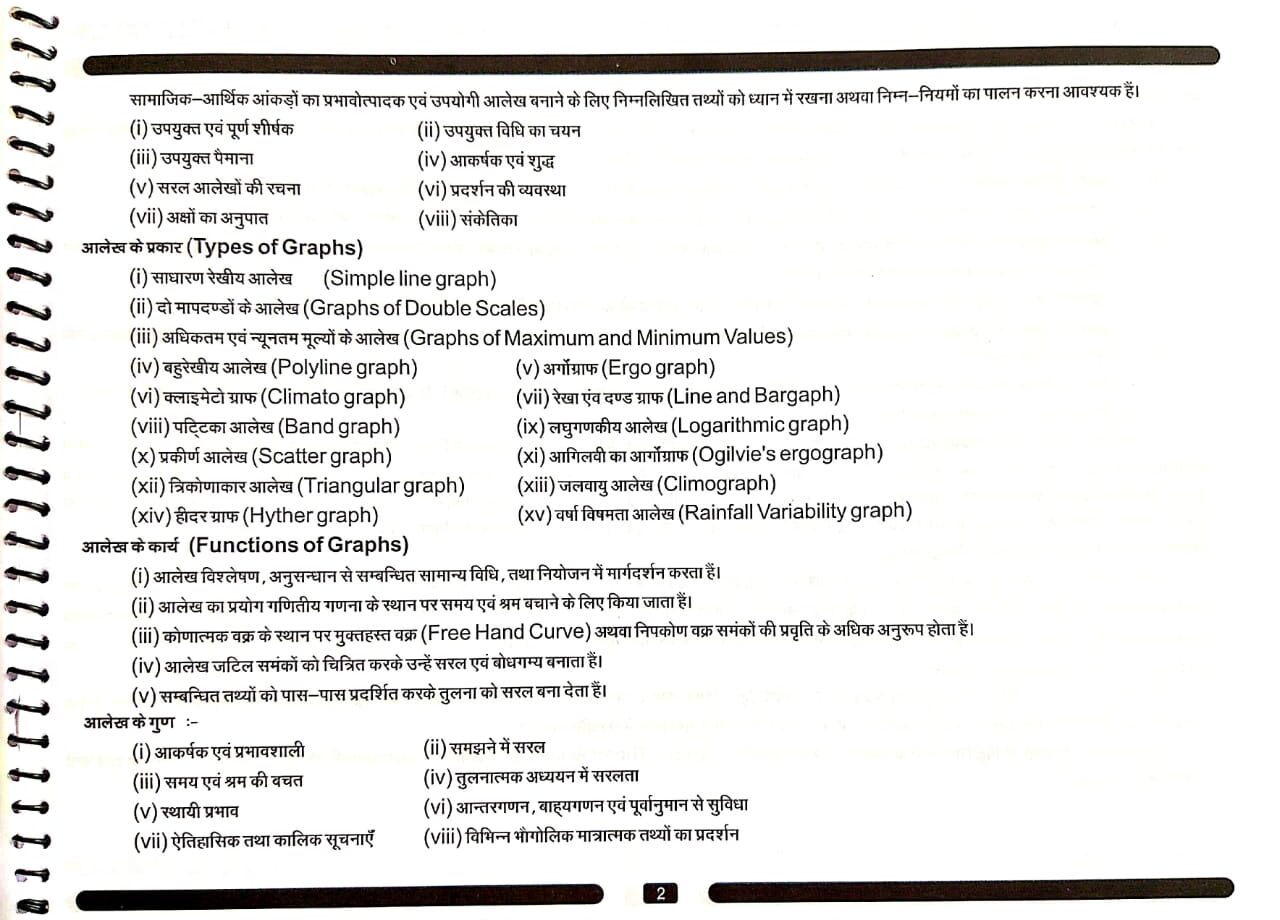 सामाजिक–आर्थिक आंकड़ों का प्रभावोत्पादक एवं उपयोगी आलेख बनाने के लिए निम्नलिखित तथ्यों को ध्यान में रखना अथवा निम्न–नियमों का पालन करना आवश्यक हैं।
(i) उपयुक्त एवं पूर्ण शीर्षक (ii) उपयुक्त विधि का चयन
(iii) उपयुक्त पैमाना (iv) आकर्षक एवं शुद्ध
(v) सरल आलेखों की रचना (vi) प्रदर्शन की व्यवस्था
(vii) अक्षों का अनुपात (viii) संकेतिका
आलेख के प्रकार (Types of Graphs)
(i) साधारण रेखीय आलेख (Simple line graph)
(ii) दो मापदण्डों के आलेख (Graphs of Double Scales)
(iii) अधिकतम एवं न्यूनतम मूल्यों के आलेख (Graphs of Maximum and Minimum Values)
(iv) बहुरेखीय आलेख (Polyline graph) (v) अर्गोग्राफ (Ergo graph)
(vi) क्लाइमेटो ग्राफ (Climato graph) (vii) रेखा एंव दण्ड ग्राफ (Line and Bargaph)
(viii) पट्टिका आलेख (Band graph) (ix) लघुगणकीय आलेख (Logarithmic graph)
(x) प्रकीर्ण आलेख (Scatter graph) (xi) आगिलवी का आर्गोग्राफ (Ogilvie's ergograph)
(xii) त्रिकोणाकार आलेख (Triangular graph) (xiii) जलवायु आलेख (Climograph)
(xiv) हीदर ग्राफ (Hyther graph) (xv) वर्षा विषमता आलेख (Rainfall Variability graph)
आलेख के कार्य (Functions of Graphs)
(i) आलेख विश्लेषण, अनुसन्धान से सम्बन्धित सामान्य विधि, तथा नियोजन में मार्गदर्शन करता हैं।
(ii) आलेख का प्रयोग गणितीय गणना के स्थान पर समय एवं श्रम बचाने के लिए किया जाता हैं।
(iii) कोणात्मक वक्र के स्थान पर मुक्तहस्त वक्र (Free Hand Curve) अथवा निपकोण वक्र समंकों की प्रवृति के अधिक अनुरूप होता हैं।
(iv) आलेख जटिल समंकों को चित्रित करके उन्हें सरल एवं बोधगम्य बनाता हैं।
(v) सम्बन्धित तथ्यों को पास–पास प्रदर्शित करके तुलना को सरल बना देता हैं।
आलेख के गुण :–
(i) आकर्षक एवं प्रभावशाली (ii) समझने में सरल
(iii) समय एवं श्रम की बचत (iv) तुलनात्मक अध्ययन में सरलता
(v) स्थायी प्रभाव (vi) आन्तरगणन, बाह्यगणन एवं पूर्वानुमान से सुविधा
(vii) ऐतिहासिक तथा कालिक सूचनाएँ (viii) विभिन्न भौगोलिक मात्रात्मक तथ्यों का प्रदर्शन
2